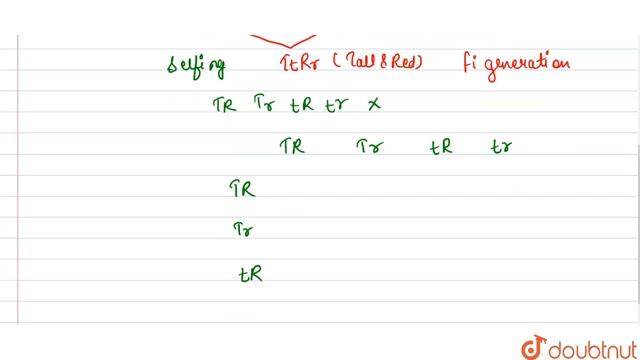 Selfing TtRr (Tall & Red) F1 generation
TR Tr tR tr x
TR Tr tR tr
TR
Tr
tR
doubtnut